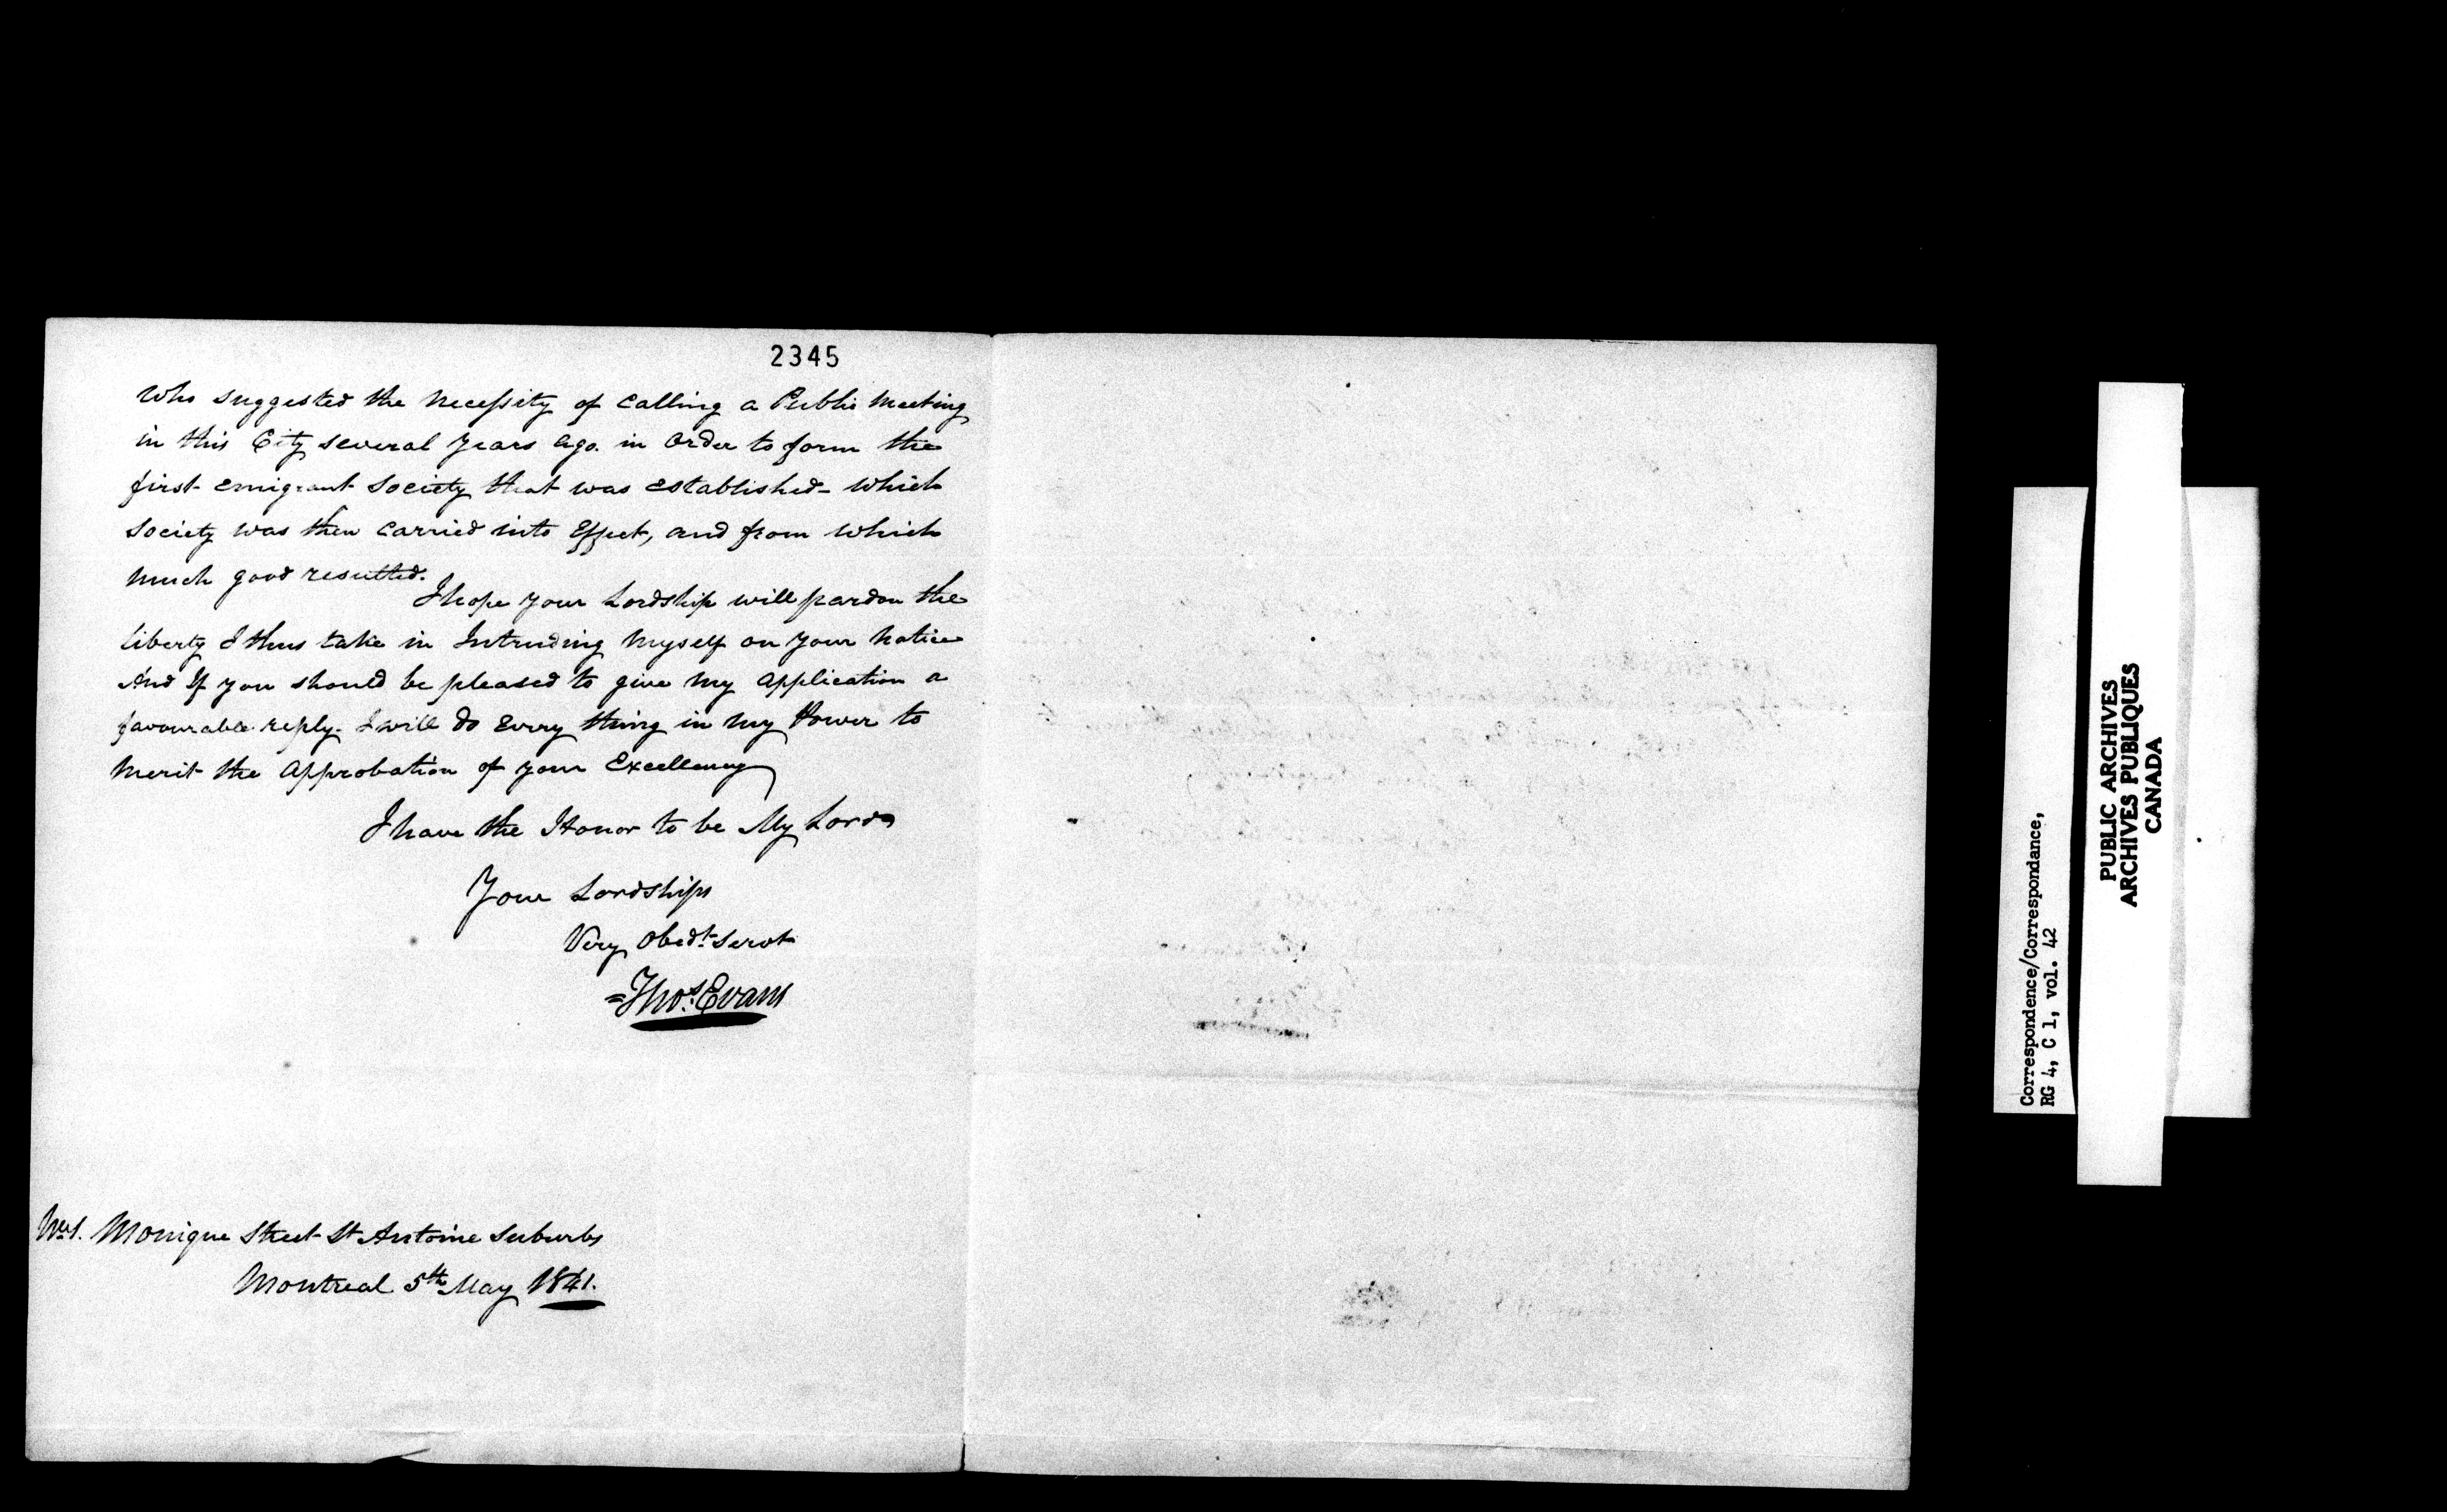 2345
Who suggested the necessity of calling a Public Meeting
in this City several Years ago. in Order to form the
first emigrant Society that was established - which
Society was then carried into Effect, and from which
much good resulted.
I hope your Lordship will pardon the
liberty I thus take in Intruding myself on your notice
And If you should be pleased to give my Application a
favourable reply. I will do every thing in my Power to
merit the Approbation of your Excellency
I have the Honor to be My Lord
Your Lordships
Very Obedt. Servt
= Thos. Evans
No. 1. Monique Street St Antoine Suburbs
Montreal 5th May 1841.
Correspondence/Correspondance,
RG 4, C 1, vol. 42
PUBLIC ARCHIVES
ARCHIVES PUBLIQUES
CANADA